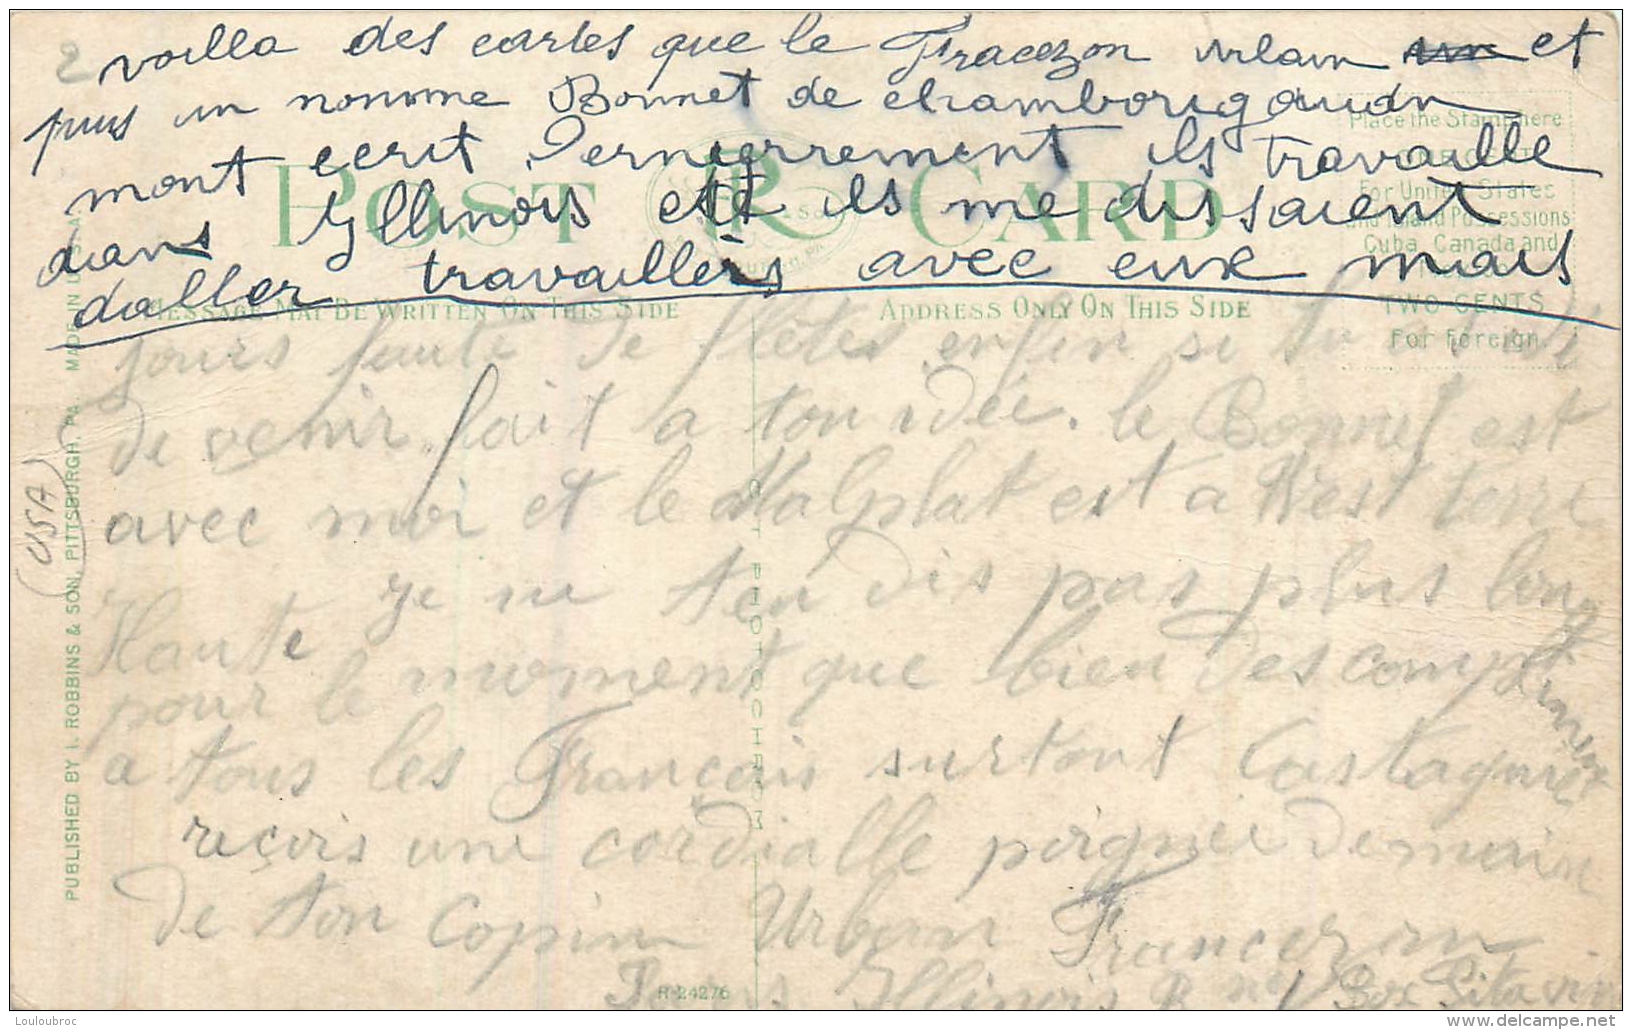 2 voilla des cartes que le Fracezon urlain et
puis un nomme Bonnet de chamborigaudn
mont ecrit Dernierrement ils travaille
dans Yllinois ett ils me dissaient
daller travaillèrs avec eux mais
POST CARD
Place the Stamp here
For United States
and Island Possessions
Cuba, Canada and
TWO CENTS
For Foreign.
MESSAGE MAY BE WRITTEN ON THIS SIDE
ADDRESS ONLY ON THIS SIDE
jours faute de enfin si tu
de venir fait a ton idée. le Bonnet est
avec moi et le Malplat est a West terre
Haute je ne t'en dis pas plus long
pour le moment que bien des compliments
a tous les Français surtout Castagnier
reçois une cordialle poignée de main
de ton Copin Urbain Francezon
Illinois R no 1 Box
PUBLISHED BY I. ROBBINS & SON, PITTSBURGH, PA. MADE IN U.S.A.
(USA)
PHOTOCHROM
R-24276
Louloubroc
delcampe.net